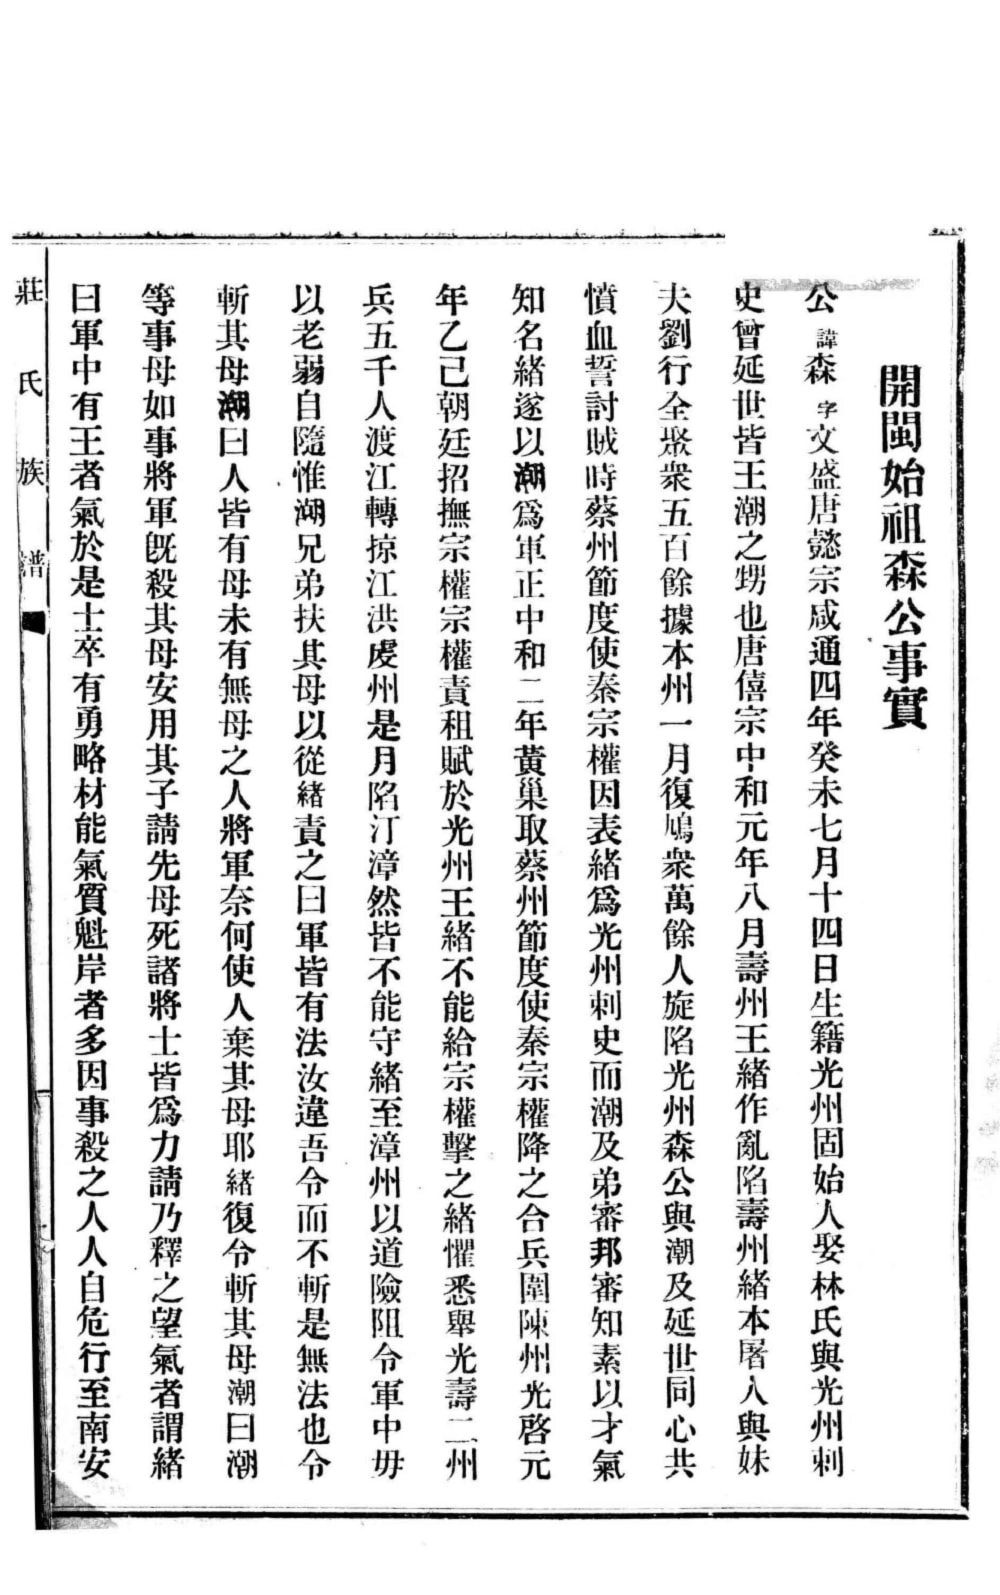 開閩始祖森公事實
公諱森字文盛唐懿宗咸通四年癸未七月十四日生籍光州固始人娶林氏與光州刺
史曾延世皆王潮之甥也唐僖宗中和元年八月壽州王緒作亂陷壽州緒本屠人與妹
夫劉行全聚衆五百餘據本州一月復鳩衆萬餘人旋陷光州森公與潮及延世同心共
憤血誓討賊時蔡州節度使秦宗權因表緒爲光州刺史而潮及弟審邦審知素以才氣
知名緒遂以潮爲軍正中和二年黃巢取蔡州節度使秦宗權降之合兵圍陳州光啓元
年乙己朝廷招撫宗權宗權責租賦於光州王緒不能給宗權擊之緒懼悉舉光壽二州
兵五千人渡江轉掠江洪虔州是月陷汀漳然皆不能守緒至漳州以道險阻令軍中毋
以老弱自隨惟湖兄弟扶其母以從緒責之曰軍皆有法汝違吾令而不斬是無法也令
斬其母潮曰人皆有母未有無母之人將軍奈何使人棄其母耶緒復令斬其母潮曰潮
等事母如事將軍旣殺其母安用其子請先母死諸將士皆爲力請乃釋之望氣者謂緒
曰軍中有王者氣於是士卒有勇略材能氣質魁岸者多因事殺之人人自危行至南安
莊氏族譜